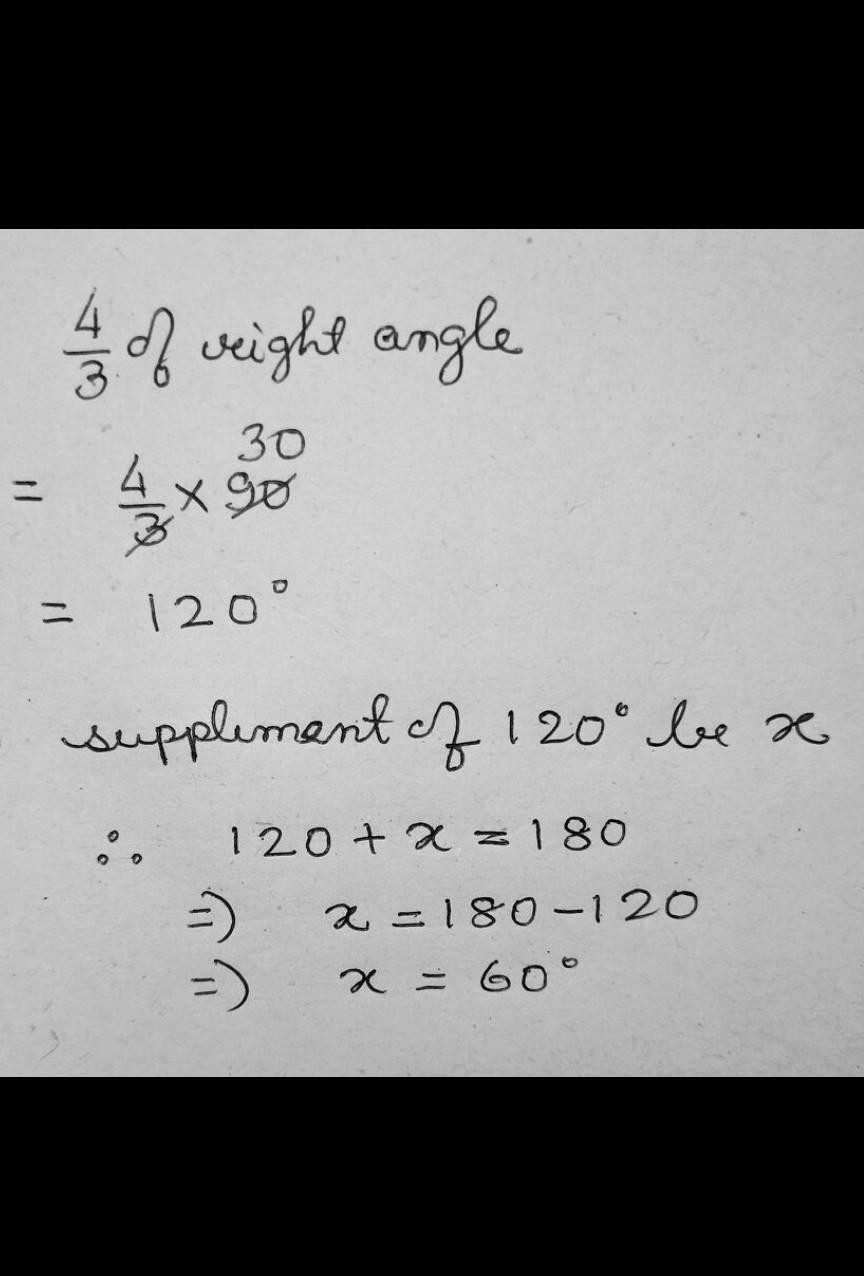 4/3 of right angle
= 4/3 × 90 30
= 120°
supplement of 120° be x
∴ 120 + x = 180
=) x = 180 - 120
=) x = 60°